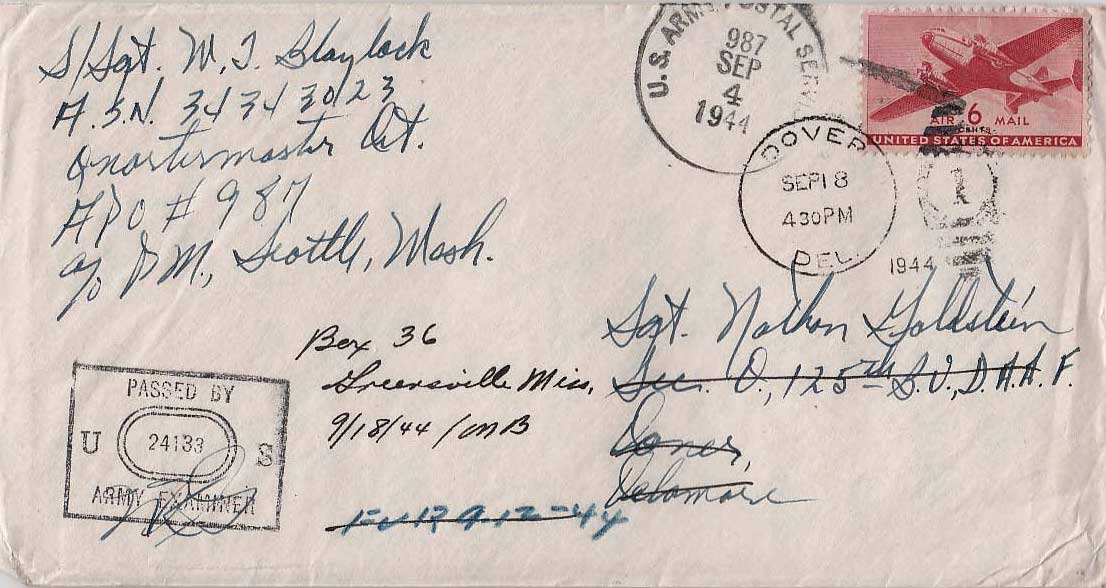 S/Sgt. W. T. Blaylock
A.S.N. 34343023
Quartermaster Det.
APO # 987
c/o PM, Seattle, Wash.
U.S. ARMY POSTAL SERVICE
987
SEP
4
1944
AIR 6 MAIL
CENTS
UNITED STATES OF AMERICA
DOVER
SEP 18
4 30 PM
DEL.
1944
1
Sgt. Nathan Goldstein
Sec. O, 125th S.U., D.A.A.F.
Dover,
Delaware
Box 36
Greenville Miss.
9/18/44 / mB
PASSED BY
U 24133 S
ARMY EXAMINER
9-12-44